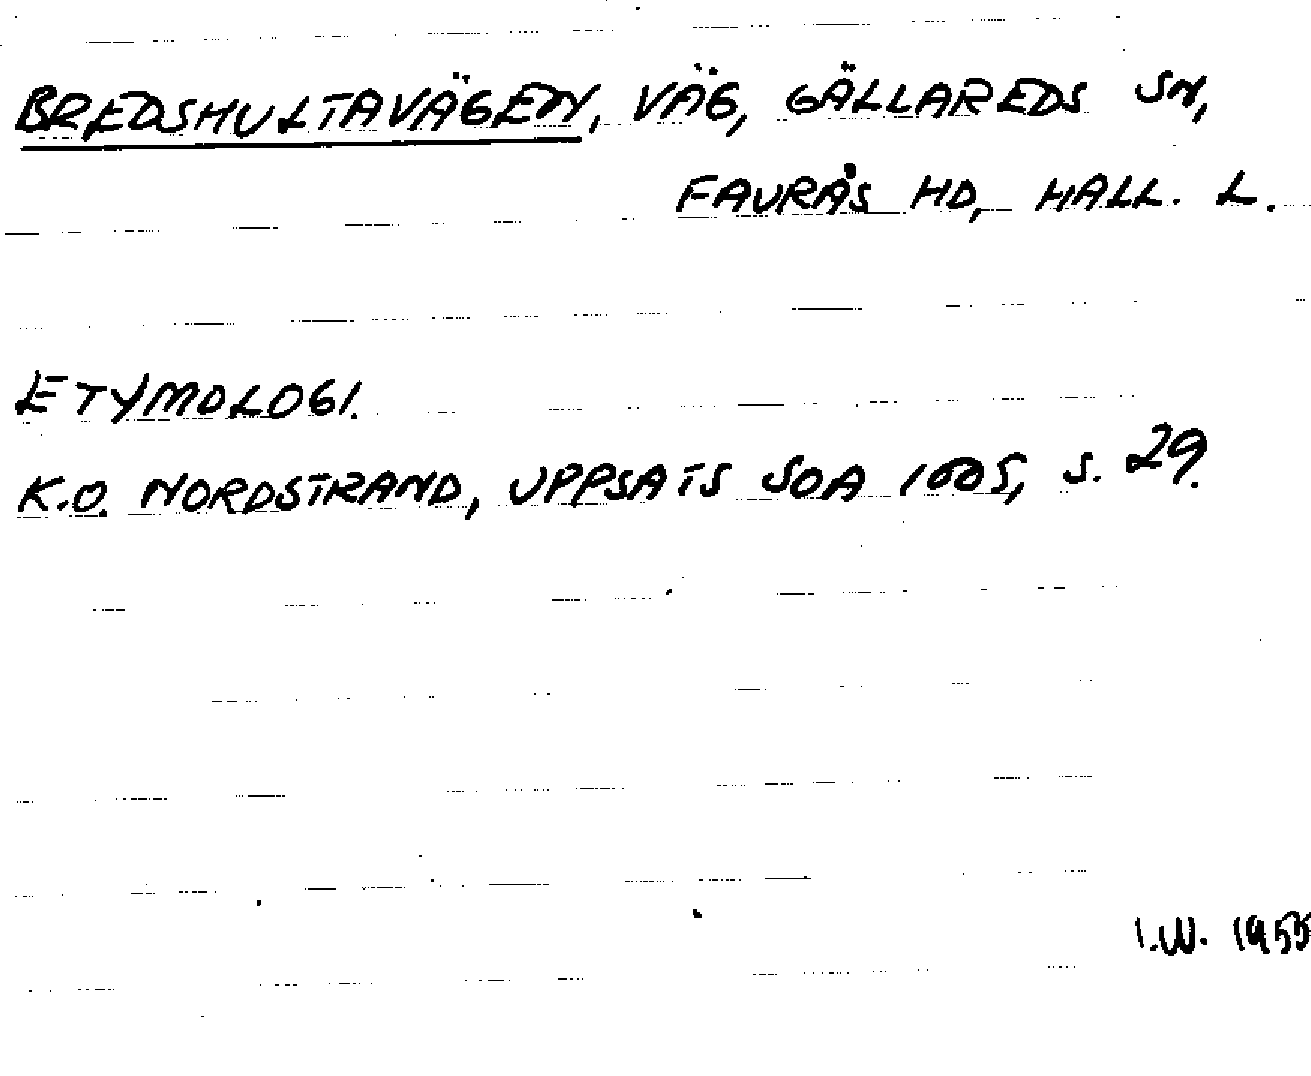 BREDSHULTAVÄGEN, VÄG, GÄLLAREDS SN,
FAURÅS HD, HALL. L.
ETYMOLOGI.
K.O. NORDSTRAND, UPPSATS SOA 1005, S. 29.
I.W. 1955